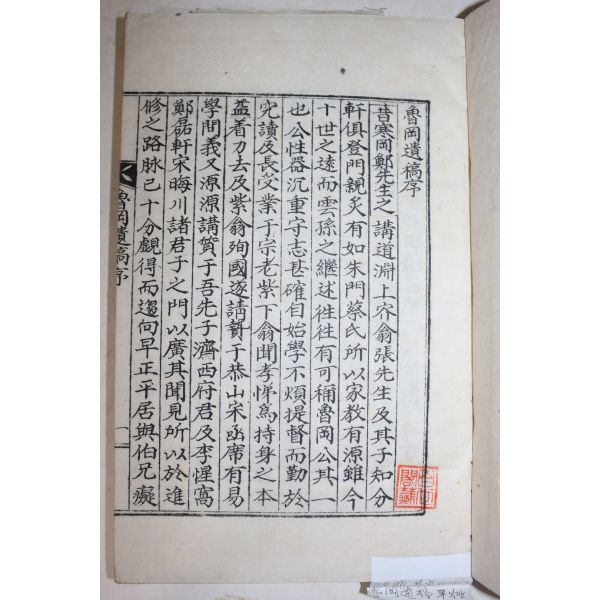 魯岡遺稿序
昔寒岡鄭先生之講道淵上齐翁張先生及其子知分
軒俱登門親炙有如朱門蔡氏所以家敎有源雖今
十世之遠而雲孫之繼述徃徃有可稱魯岡公其一
也公性器沉重守志甚確自始學不煩提督而勤於
究讀及長受業于宗老紫下翁聞孝悌爲持身之本
益着力去及紫翁殉國遂請贄于恭山宋函席有易
學問義又源源講質于吾先子濟西府君及李惺窩
鄭磊軒宋晦川諸君子之門以廣其聞見所以於進
修之路脉已十分覰得而趨向早正平居與伯兄癡
魯岡遺稿序
一